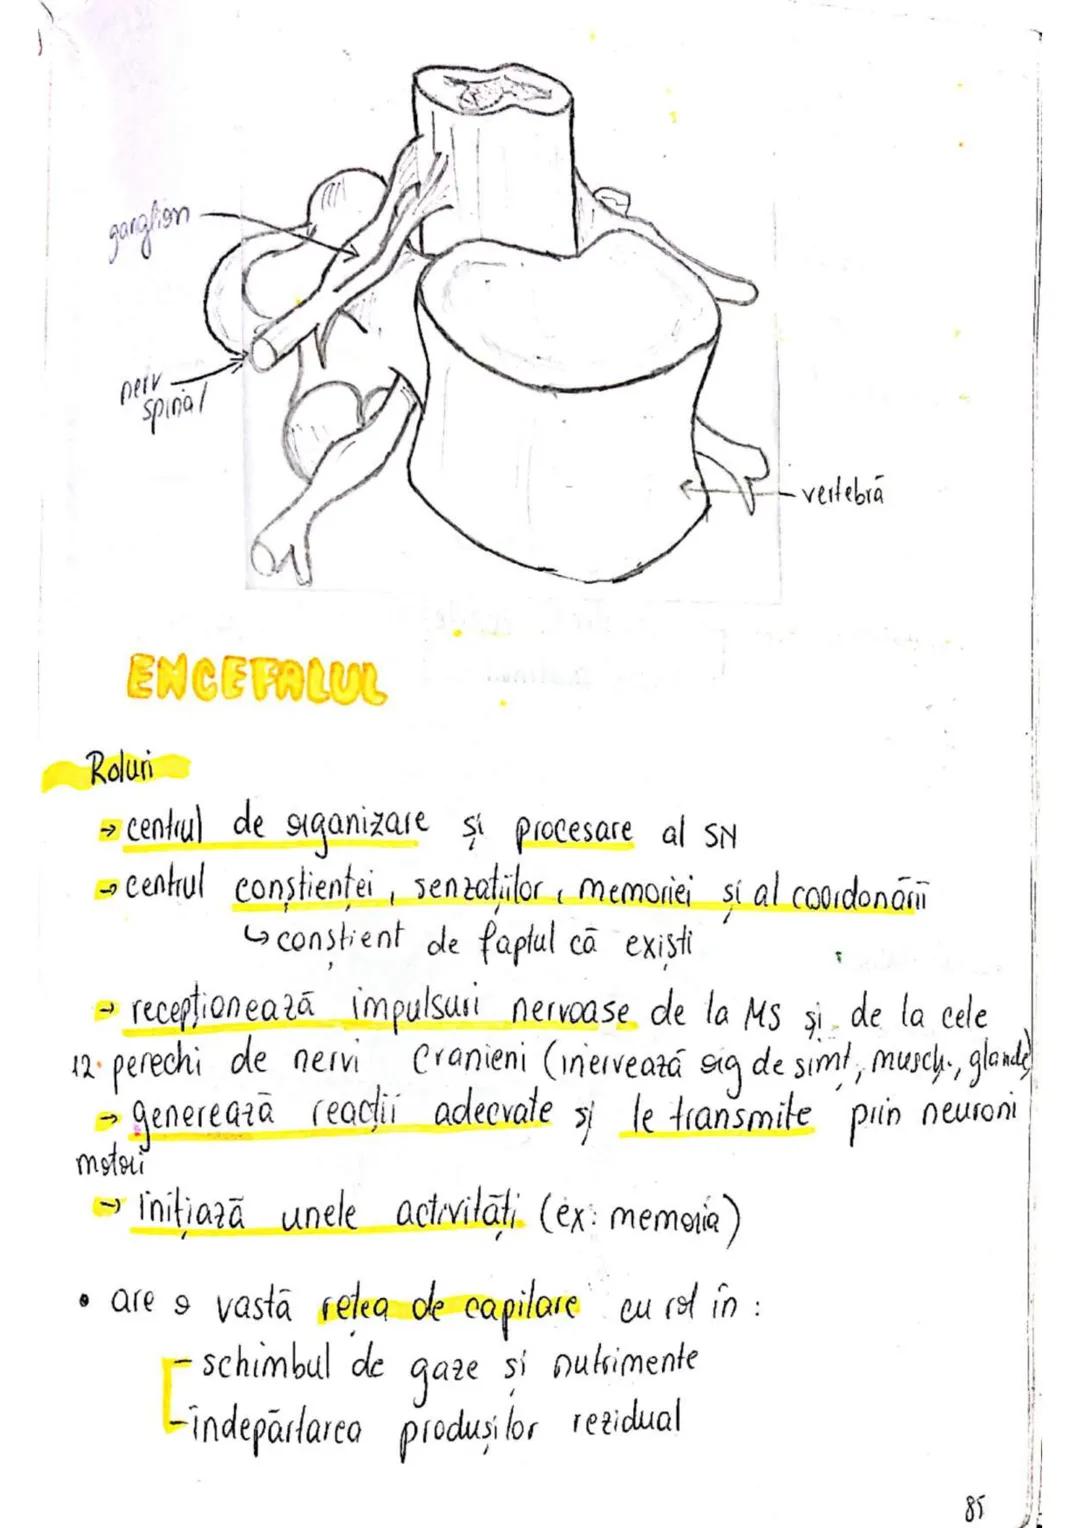 ganglion
nerv
spinal
vertebră
ENCEFALUL
Roluri
→ centrul de organizare și procesare al SN
→ centrul conștienței, senzațiilor, memoriei și al coordonării
↳ conștient de faptul că existi
→ recepționează impulsuri nervoase de la MS și de la cele
12 perechi de nervi cranieni (inervează org de simț, musch., glande)
→ generează reacții adecvate și le transmite prin neuroni
motori
→ inițiază unele activități (ex: memoria)
• are o vastă rețea de capilare cu rol în :
- schimbul de gaze si nutrimente
- îndepărtarea produșilor rezidual
85